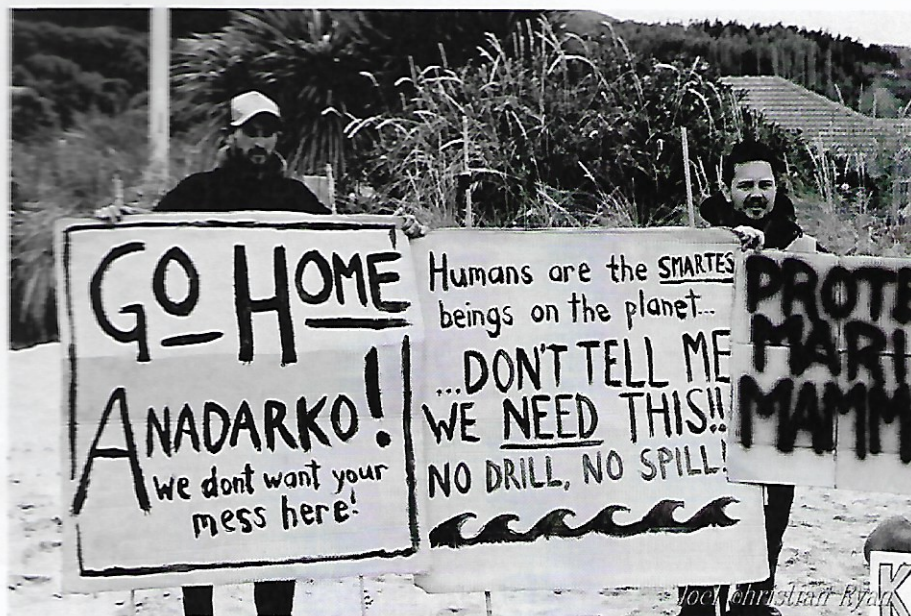 GO HOME
ANADARKO!
We dont want your
mess here!
Humans are the SMARTES
beings on the planet...
...DON'T TELL ME
WE NEED THIS!!
NO DRILL, NO SPILL!
PROTE
MARI
MAMM
K
Joel Christian Ryan